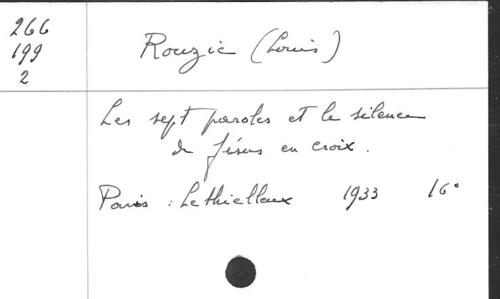 266
199
2
Rouzic (Louis)
Les sept paroles et le silence
de Jésus en croix.
Paris : Lethielleux 1933 16°